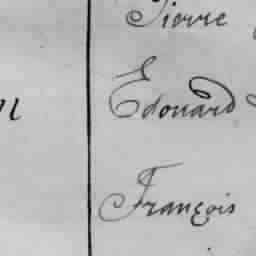 Pierre
Edouard
François